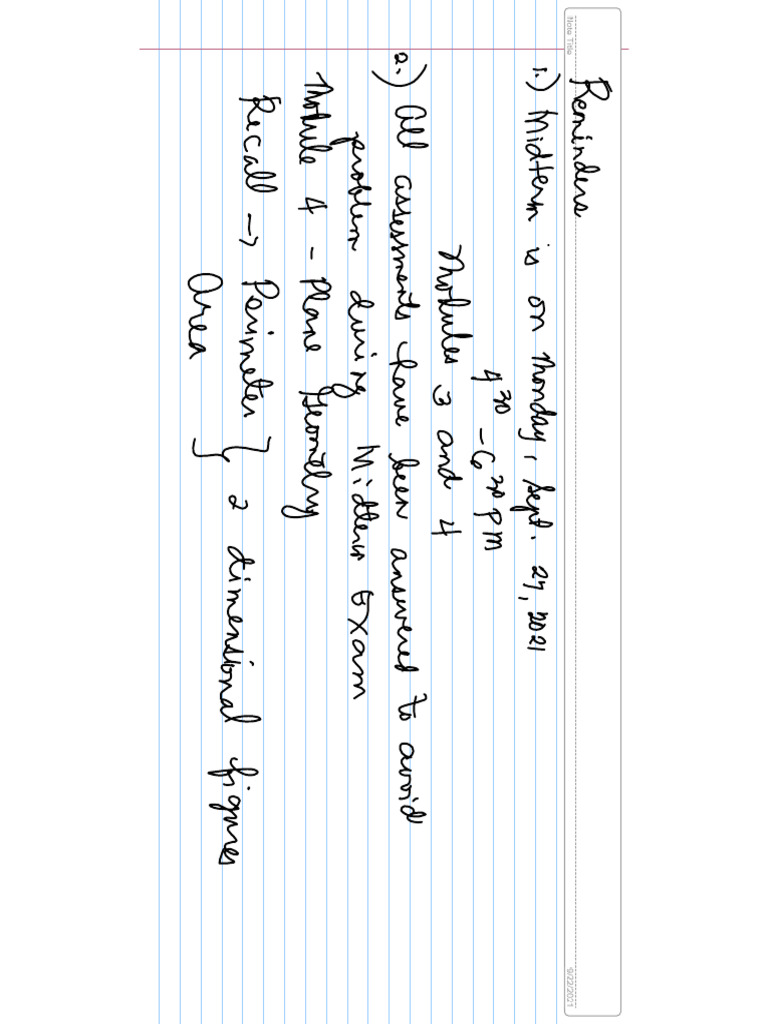 Note Title
9/22/2021
Reminders
1.) Midterm is on Monday, Sept. 27, 2021
4 30 - 6 30 PM
Modules 3 and 4
2.) All assessments have been answered to avoid
problem during Midterm Exam
Module 4 - Plane Geometry
Recall → Perimeter } 2 dimensional figures
Area